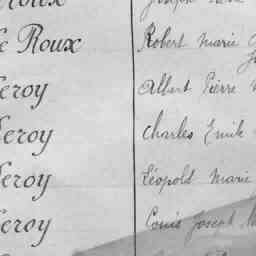 Le Roux Robert Marie
Leroy Albert Pierre
Leroy Charles Emile
Leroy Léopold Marie
Leroy Louis Joseph